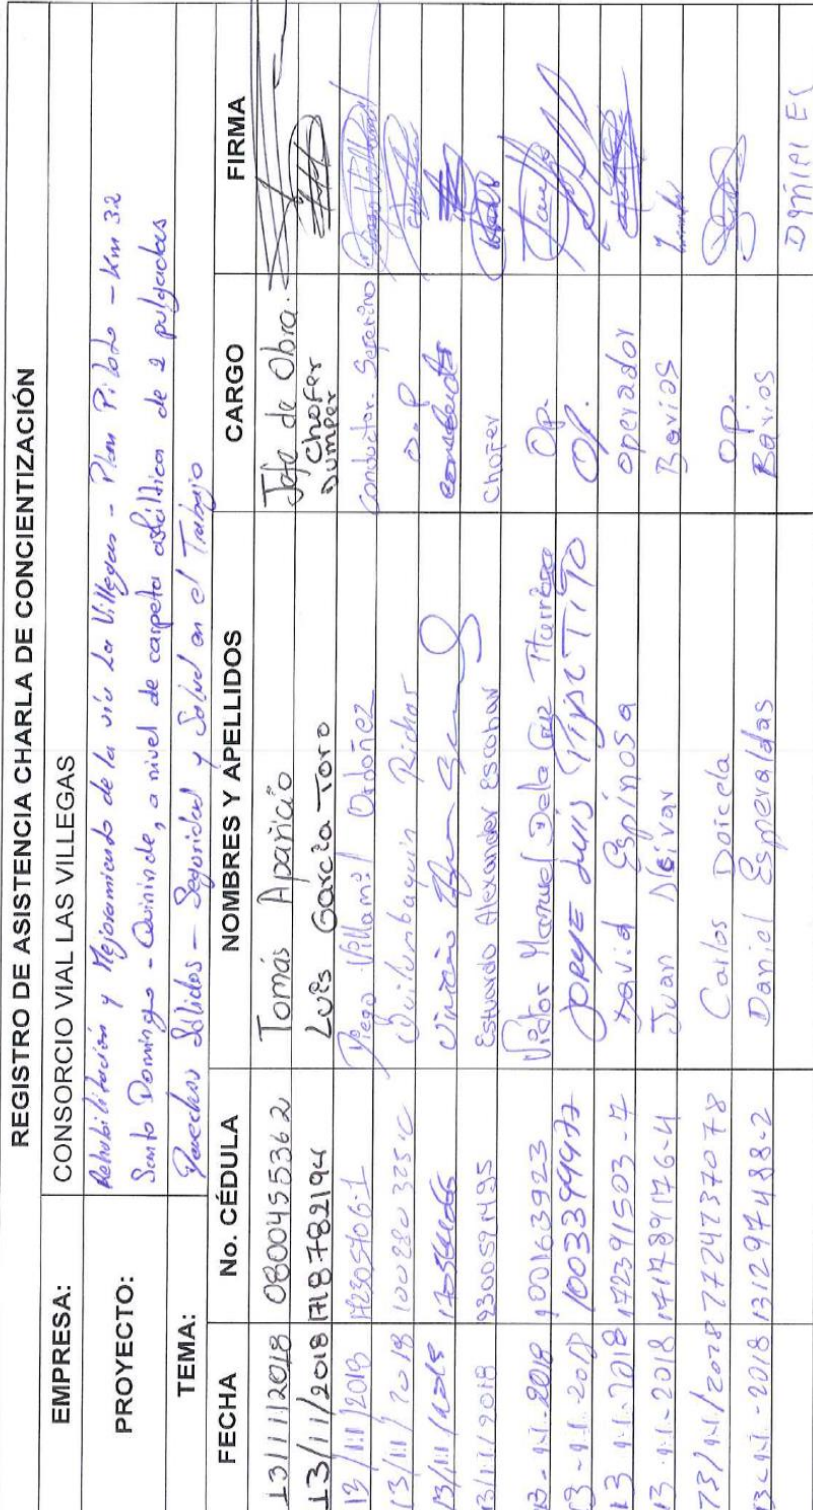 REGISTRO DE ASISTENCIA CHARLA DE CONCIENTIZACIÓN
EMPRESA: CONSORCIO VIAL LAS VILLEGAS
PROYECTO: Rehabilitación y Mejoramiento de la vía Las Villegas - Plan Piloto - Km 32
Santo Domingo - Quininde, a nivel de carpeta asfáltica de 2 pulgadas
TEMA: Desechos Sólidos - Seguridad y Salud en el Trabajo
FECHA No. CÉDULA NOMBRES Y APELLIDOS CARGO FIRMA
13/11/2018 0800455362 Tomás Aparicio Jefe de Obra.
13/11/2018 1718782194 Luis García Toro Chofer Dumper
13/11/2018 Diego Villamil Ordoñez Conductor
13/11/2018 Quilumbaquin Richar O.P
13/11/2018
13/11/2018 Estuardo Alexander Escobar Chofer
13-11-2018 100163923 Victor Manuel Dela Cruz Op.
13-11-2018 1003394477 Jorge Luis OP.
13-11-2018 172391503-7 David Espinosa operador
13-11-2018 171789176-4 Juan Barios
13/11/2018 Carlos Doicela OP.
13-11-2018 131297488-2 Daniel Esmeraldas Barios